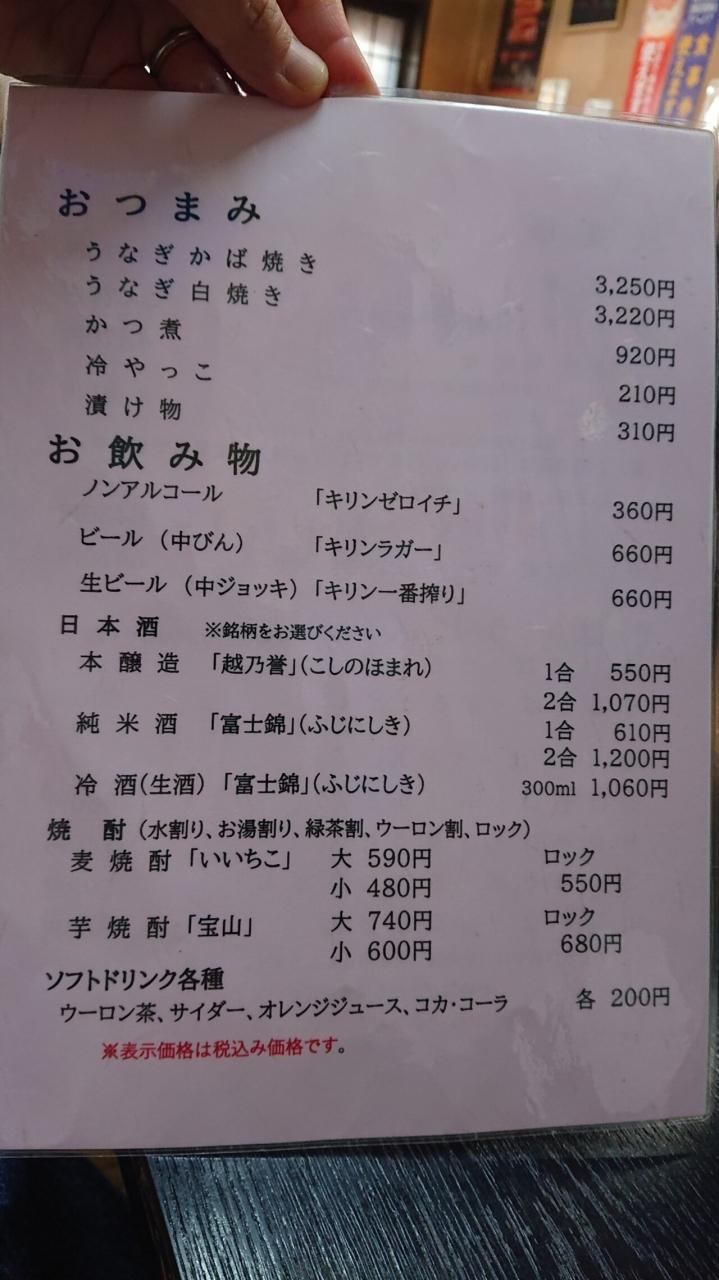 おつまみ
うなぎかば焼き 3,250円
うなぎ白焼き 3,220円
かつ煮 920円
冷やっこ 210円
漬け物 310円
お飲み物
ノンアルコール 「キリンゼロイチ」 360円
ビール（中びん） 「キリンラガー」 660円
生ビール（中ジョッキ）「キリン一番搾り」 660円
日本酒 ※銘柄をお選びください
本醸造 「越乃誉」（こしのほまれ） 1合 550円
2合 1,070円
純米酒 「富士錦」（ふじにしき） 1合 610円
2合 1,200円
冷酒（生酒）「富士錦」（ふじにしき） 300ml 1,060円
焼酎（水割り、お湯割り、緑茶割、ウーロン割、ロック）
麦焼酎「いいちこ」 大 590円 ロック
小 480円 550円
芋焼酎「宝山」 大 740円 ロック
小 600円 680円
ソフトドリンク各種
ウーロン茶、サイダー、オレンジジュース、コカ・コーラ 各 200円
※表示価格は税込み価格です。